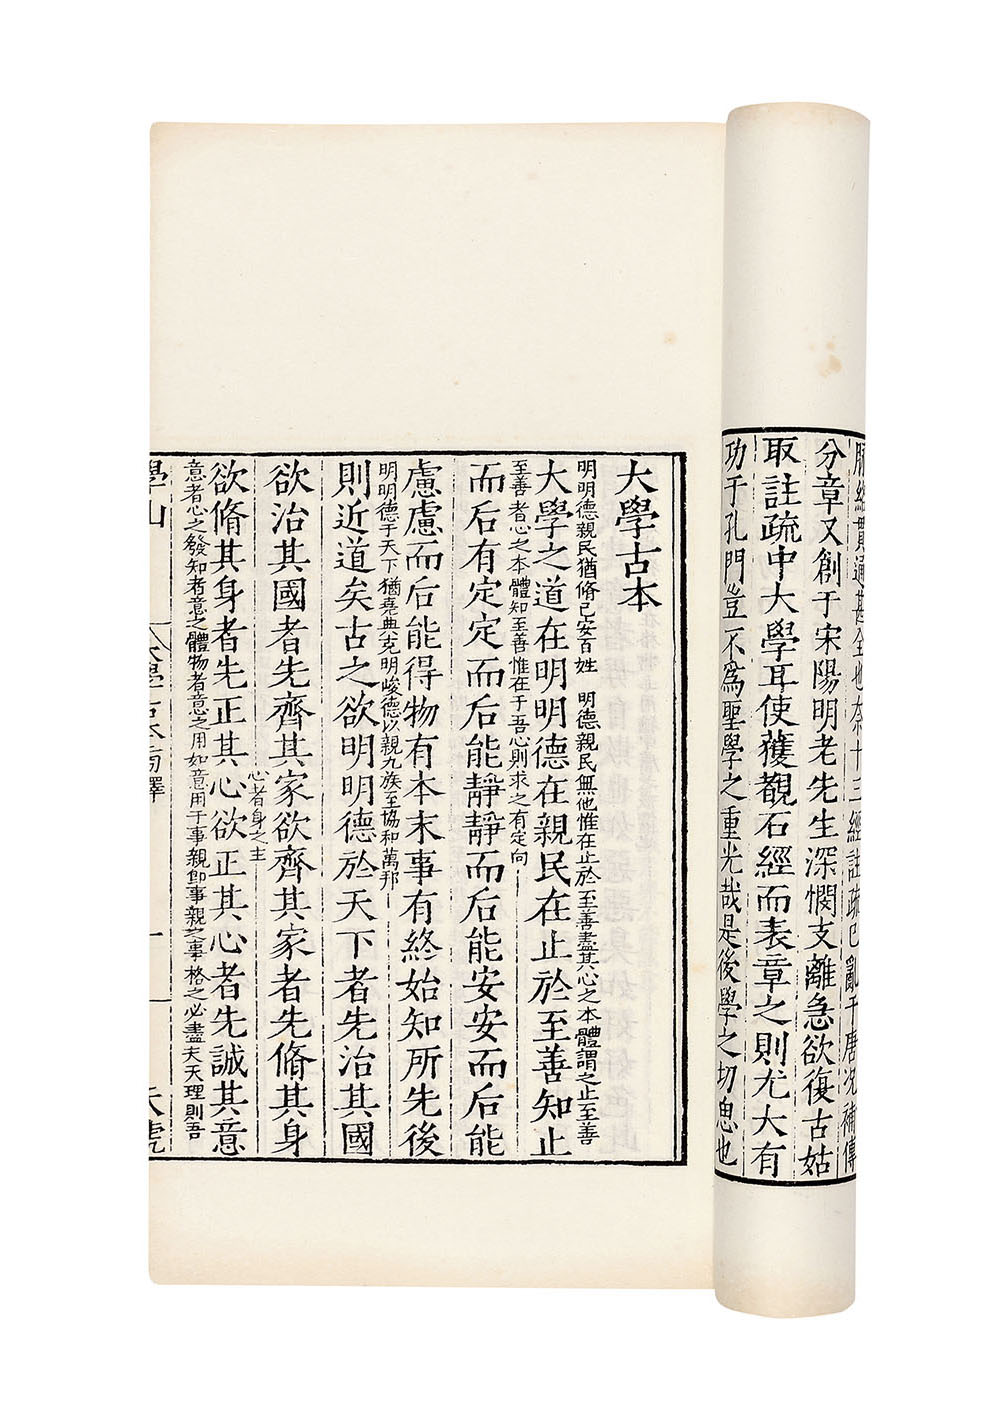 脉絡貫通甚全也奈十三經註疏已亂于唐况補傳
分章又創于宋陽明老先生深憫支離急欲復古姑
取註疏中大學耳使獲覩石經而表章之則尤大有
功于孔門豈不為聖學之重光哉是後學之切思也
大學古本
明明德親民猶脩己安百姓 明德親民無他惟在止於至善盡其心之本體謂之止至善
大學之道在明明德在親民在止於至善知止
至善者心之本體知至善惟在于吾心則求之有定向
而后有定定而后能靜靜而后能安安而后能
慮慮而后能得物有本末事有終始知所先後
明明德于天下猶堯典克明峻德以親九族至協和萬邦
則近道矣古之欲明明德於天下者先治其國
欲治其國者先齊其家欲齊其家者先脩其身
心者身之主
欲脩其身者先正其心欲正其心者先誠其意
意者心之發知者意之體物者意之用如意用于事親即事親之事格之必盡夫天理則吾
學山
大學古本旁釋
一